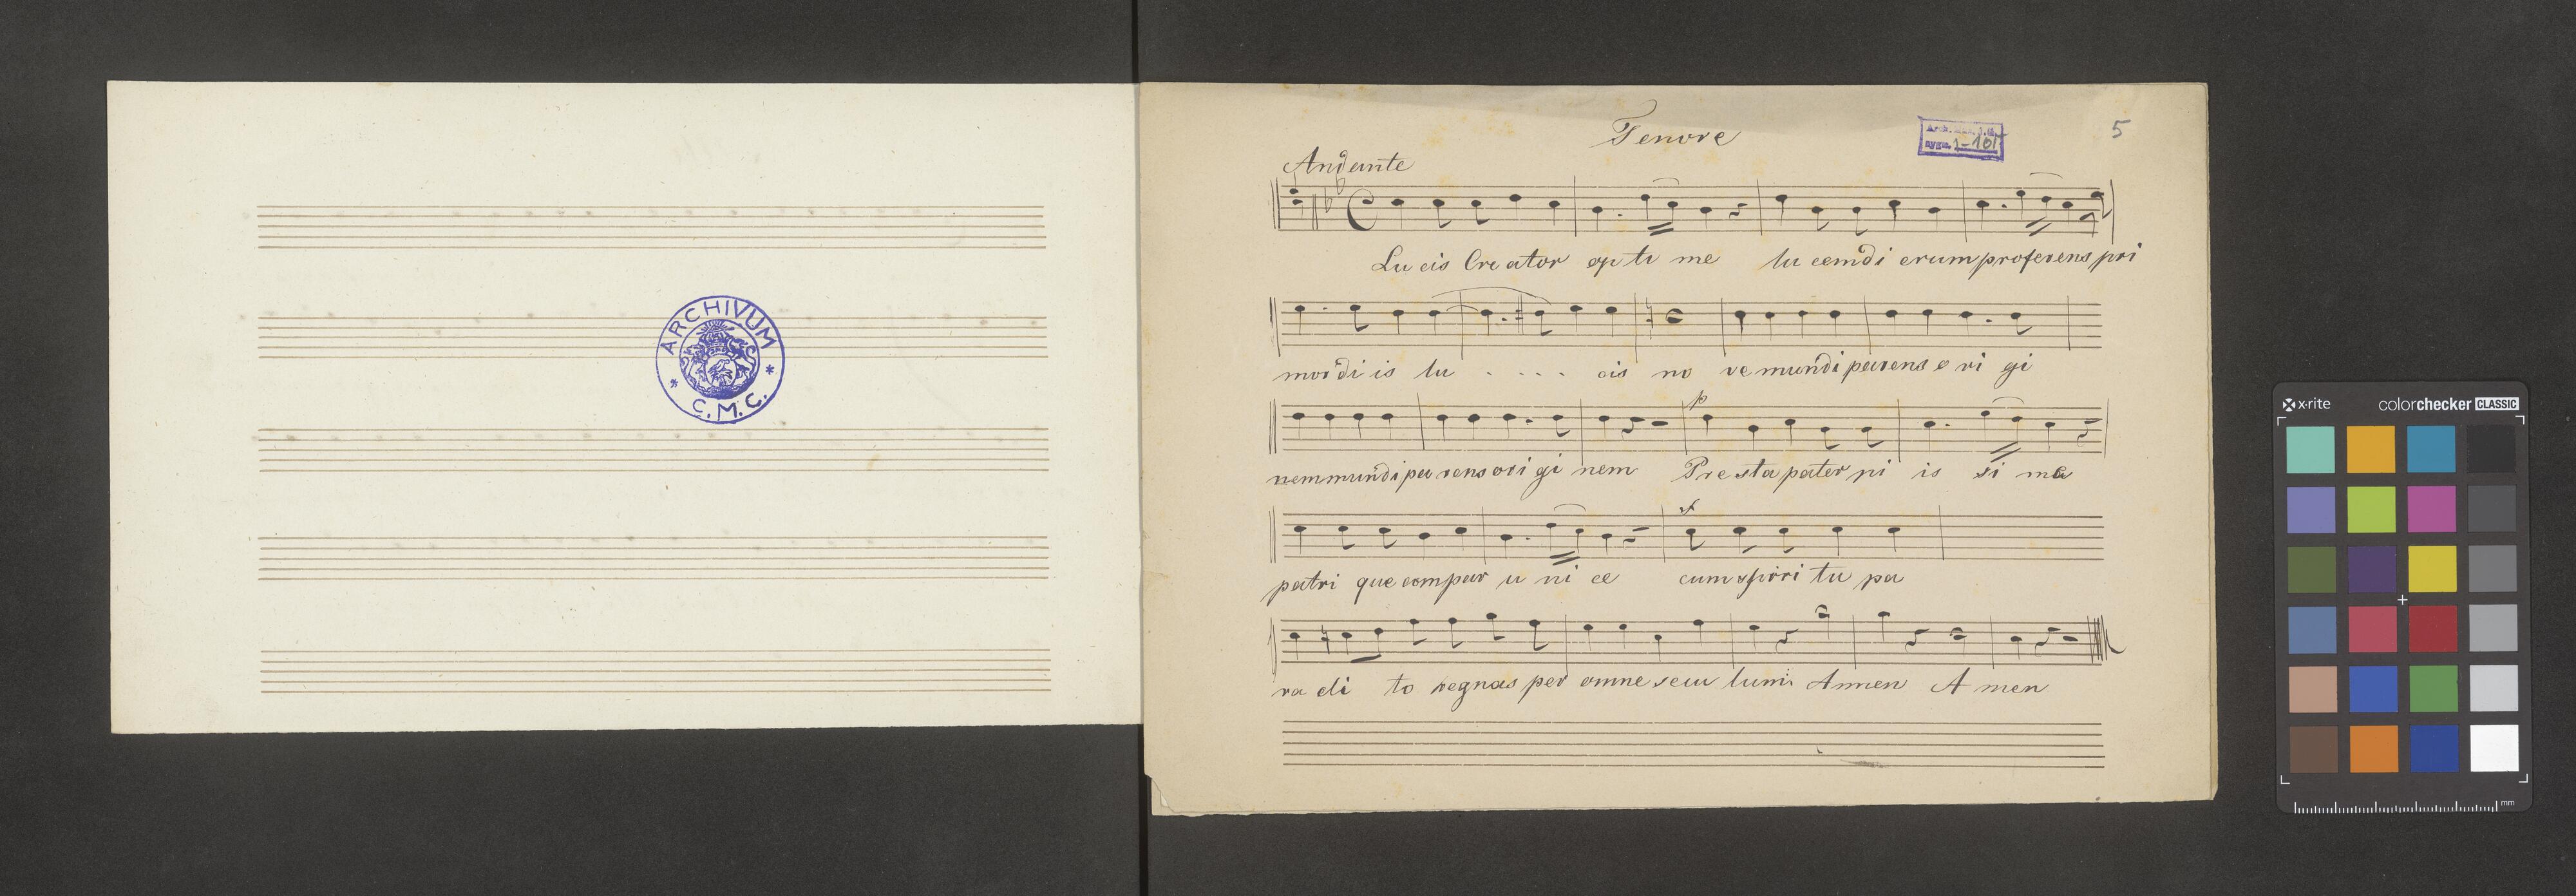 ARCHIVUM
* C.M.C. *
Tenore
5
Andante
Lu cis Cre ator op ti me lu cem di erum proferens pri
mordi is lu . . . . cis no ve mundi parens o ri gi
p
nem mundi pa rens ori gi nem Pre sta pater pi is si me
f
patri que compar u ni ce cum spiri tu pa
ra cli to regnas per omne secu lum: Amen A men
x-rite
colorchecker CLASSIC
mm